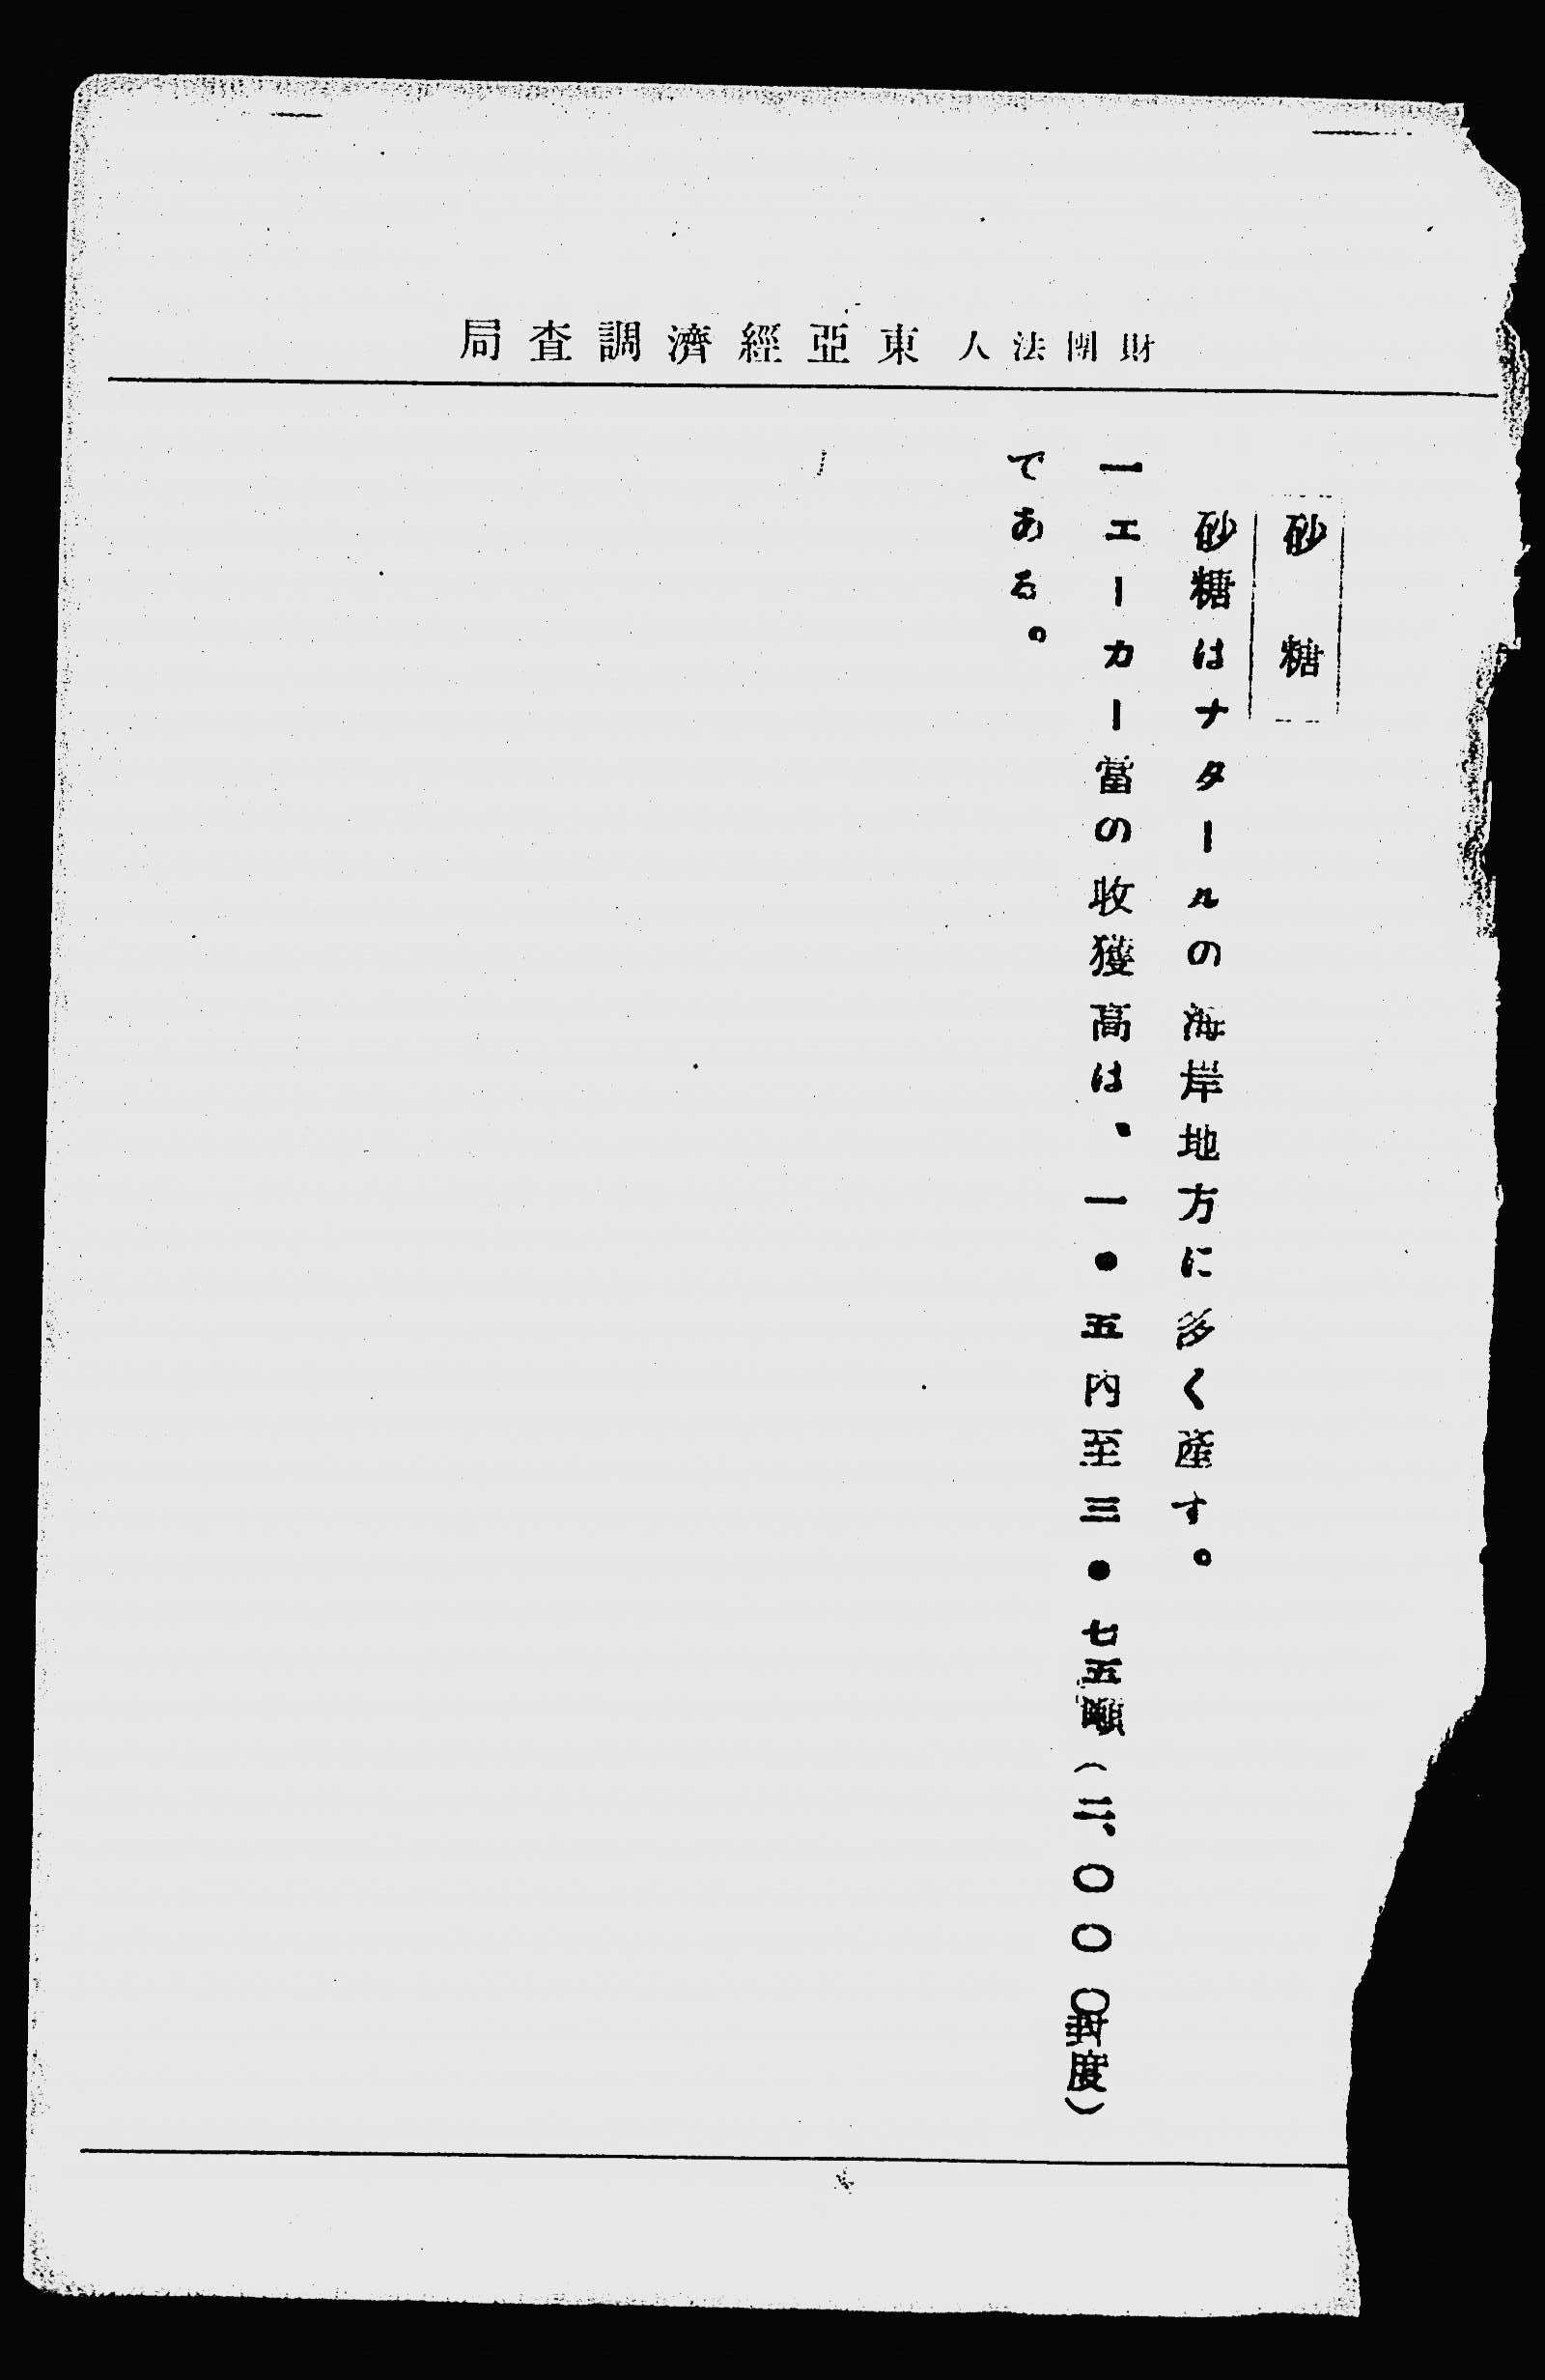 財團法人東亞經濟調査局
砂糖
砂糖はナタールの海岸地方に多く産す。
一エーカー當の收獲高は、一・五内至三・七五噸(二、〇〇〇封度)
である。